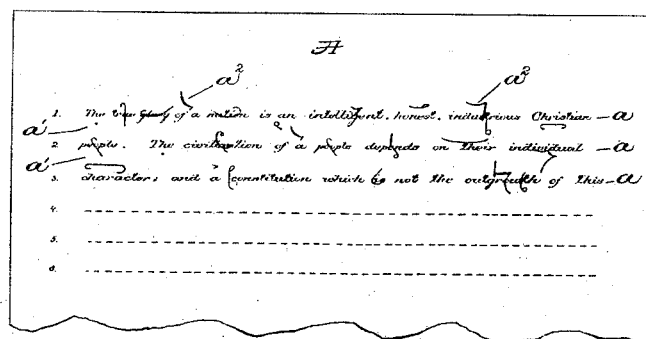 A
a² a²
1. The true glory of a nation is an intelligent, honest, industrious Christian — a
a'
2. people. The civilization of a people depends on their individual — a
a'
3. character, and a constitution which is not the outgrowth of this — a
4.
5.
6.